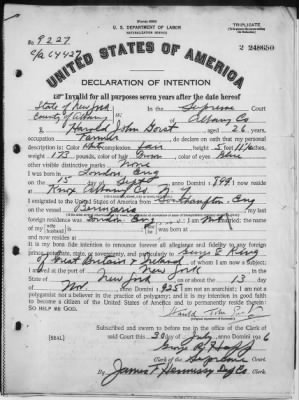 [Form 2202]
TRIPLICATE
U. S. DEPARTMENT OF LABOR
NATURALIZATION SERVICE
No. 9227
2 248650
UNITED STATES OF AMERICA
DECLARATION OF INTENTION
Invalid for all purposes seven years after the date hereof
State of New York
In the Supreme Court
County of Albany
of Albany Co
I, Harold John, aged 26 years,
occupation Farmer, do declare on oath that my personal
description is: Color White, complexion Fair, height 5 feet 11 inches,
weight 173 pounds, color of hair, color of eyes Blue
other visible distinctive marks None
I was born in London Eng
on the 15 day of Sept, anno Domini 1899; I now reside
at Knox Albany Co N.Y.
I emigrated to the United States of America from Southampton Eng
on the vessel Berengaria; my last
foreign residence was London Eng; I am not married;
was born at
and now resides at
It is my bona fide intention to renounce forever all allegiance and fidelity to any foreign
prince, potentate, state, or sovereignty, and particularly to George V King
of Great Britain & Ireland, of whom I am now a subject;
I arrived at the port of New York, in the
State of New York, on or about the 13 day
of Nov, anno Domini 1925; I am not an anarchist; I am not a
polygamist nor a believer in the practice of polygamy; and it is my intention in good faith
to become a citizen of the United States of America and to permanently reside therein:
SO HELP ME GOD.
Harold John
Subscribed and sworn to before me in the office of the Clerk of
[SEAL]
said Court this 30 day of July, anno Domini 1926
Clerk of the Supreme Court.
By James F Hennessy Dep Co. Clerk.